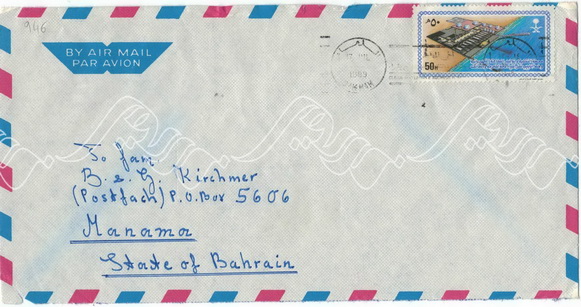 946
BY AIR MAIL
PAR AVION
٥٠
50H
1989
To Fam.
B. & G. Kirchmer
(Postfach) P.O.Box 5606
Manama
State of Bahrain